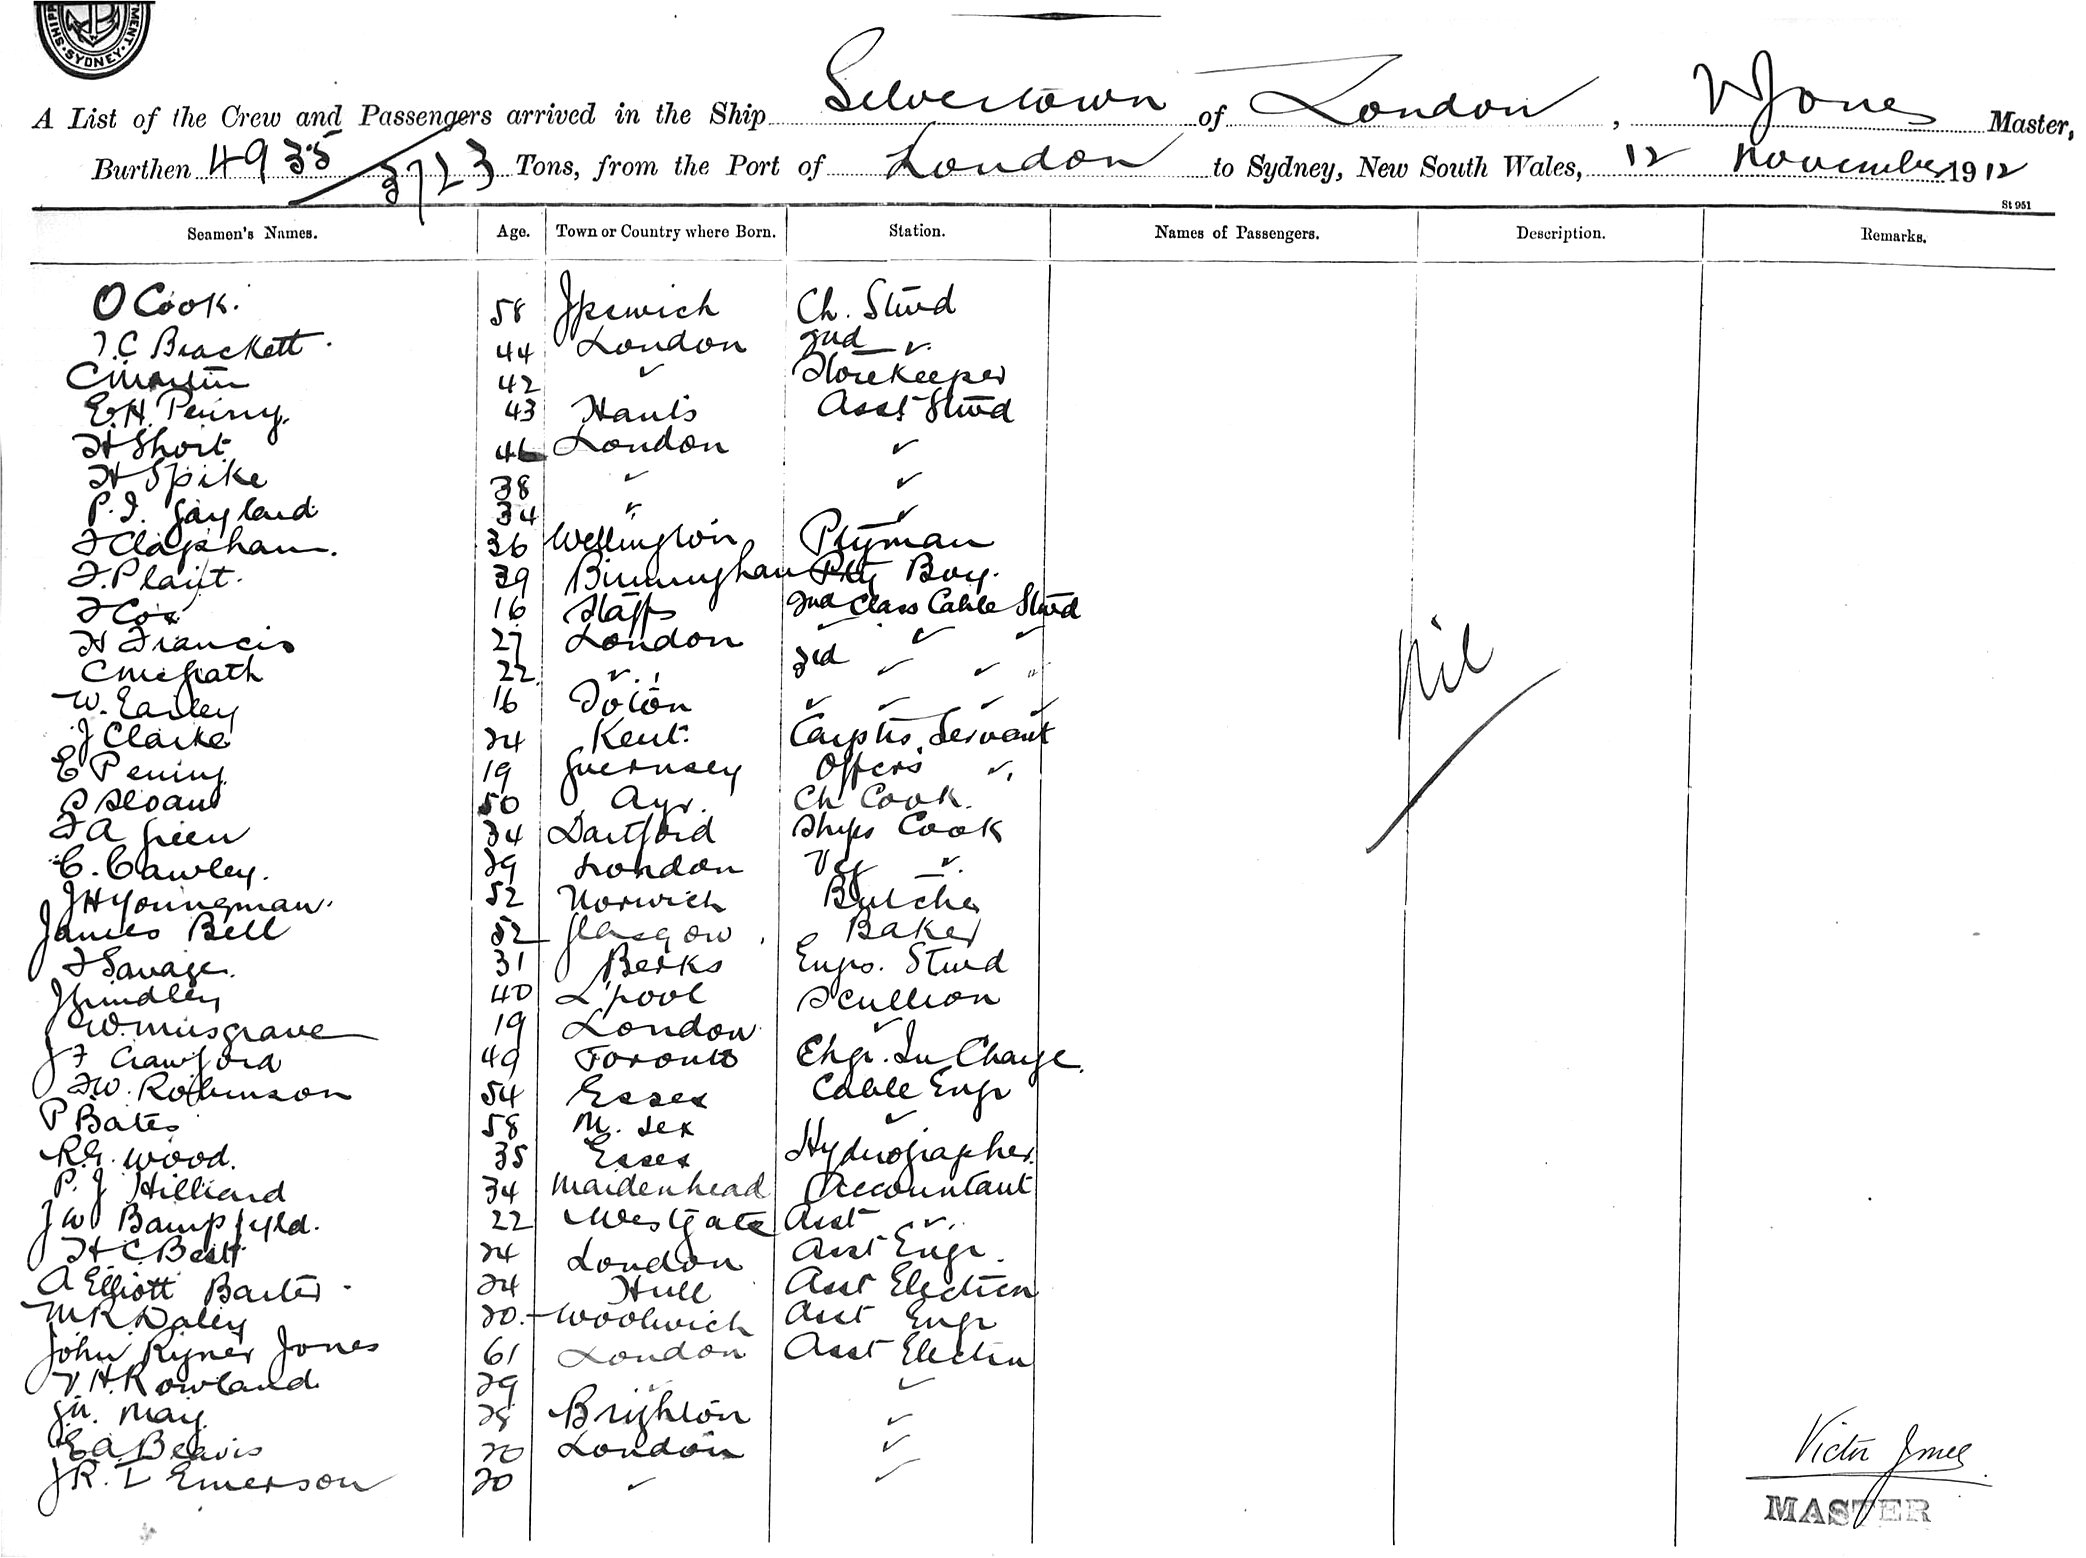 SHIPPING SYDNEY
A List of the Crew and Passengers arrived in the Ship Silvertown of London, V Jones Master,
Burthen 4935 / 3723 Tons, from the Port of London to Sydney, New South Wales, 12 November 1912
St 951
Seamen's Names. Age. Town or Country where Born. Station. Names of Passengers. Description. Remarks.
O Cook. 58 Ipswich Ch. Stwd
T.C Brackett. 44 London 2nd ✓.
C Martin 42 ✓ Storekeeper
E.H. Penny. 43 Hants Asst Stwd
H Short. London ✓
H Spike 38 ✓ ✓
P.I. Gayland 34 ✓ ✓
F Clapham. 36 Wellington Ptyman
F. Plant. 39 Birmingham Pty Boy.
F Cox 16 Staffs 2nd Class Cable Stwd
H Francis 27 London ✓ ✓ ✓
C McGrath 22. ✓ 3rd ✓ ✓ "
W. Earley 16 Toton ✓ ✓ ✓ ✓
J Clarke 24 Kent. Capts Servant
E Pening 19 Guernsey Offers ✓
P Sloan 50 Ayr. Ch Cook.
F A Green 34 Dartford Ships Cook
C. Cawley. 29 London Veg ✓
J H Youngman. 52 Norwich Butcher
James Bell 52 Glasgow. Baker
F Savage. 31 Berks Engs. Stwd
J Lindley 40 L'pool Scullion
W. Musgrave 19 London ✓
J F Crawford 49 Toronto Engr. In Charge.
F.W. Robinson 54 Essex Cable Engr
P Bates 58 M. sex ✓
R.G. Wood. 35 Essex Hydrographer.
P. J Hilliard 34 Maidenhead Accountant
J W Bampfyld. 22 Westgate Asst ✓.
H C Bestt 24 London Asst Engr.
A Elliott Baxter 24 Hull Asst Electcn
M R Daley 20. Woolwich Asst Engr
John Rymer Jones 61 London Asst Electcn
V H Rowland. 29 ✓ ✓
May. 28 Brighton ✓
E.A. Beavis 20 London ✓
J R. L Emerson 20 ✓ ✓
Nil
Victor Jones
MASTER